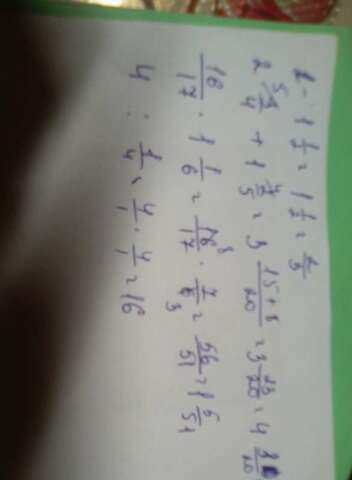 1 : 1 1/2 = 1 1/2 = 2/3
2 3/4 + 1 2/5 = 3 15+8/20 = 3 23/20 = 4 3/20
16/17 · 1 1/6 = 16/17 · 7/6 = 56/51 = 1 5/51
4 : 1/4 = 4/1 · 4/1 = 16